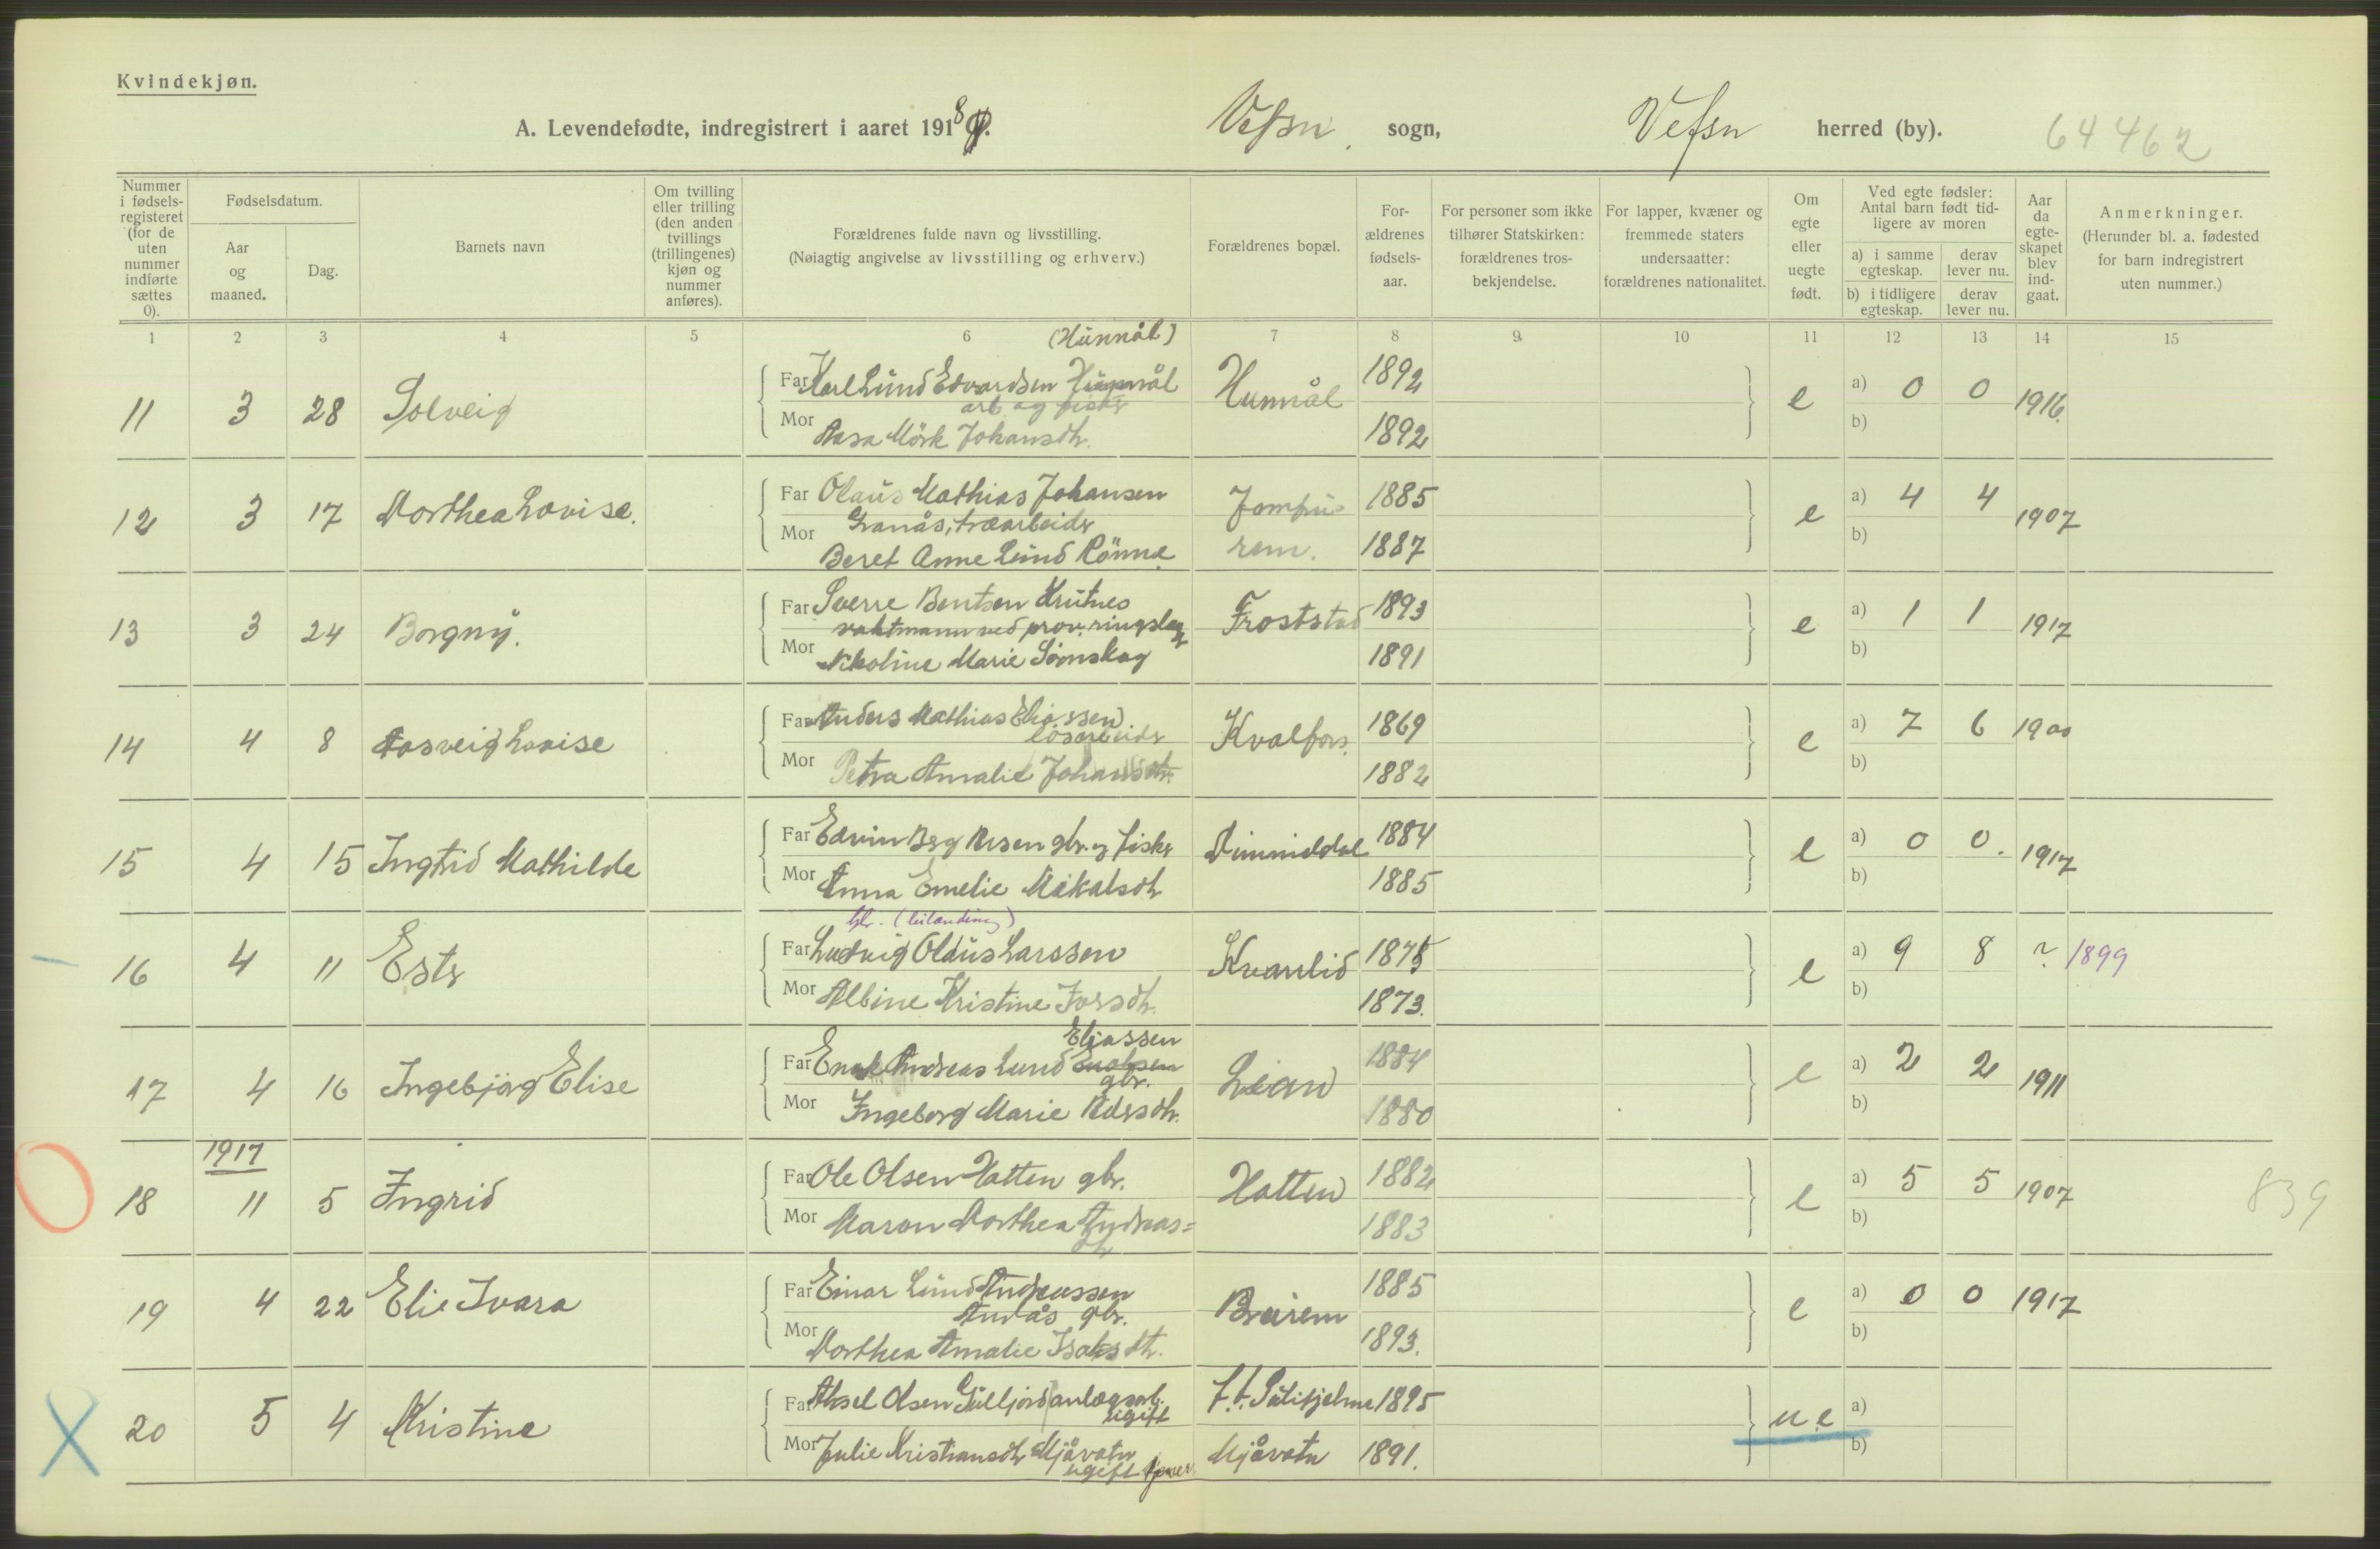 Kvindekjøn.
A. Levendefødte, indregistrert i aaret 1918. Vefsn sogn, Vefsn herred (by). 64462
Nummer i fødsels-registeret (for de uten nummer indførte sættes 0).
Fødselsdatum.
Aar og maaned.
Dag.
Barnets navn
Om tvilling eller trilling (den anden tvillings (trillingenes) kjøn og nummer anføres).
Forældrenes fulde navn og livsstilling.
(Nøiagtig angivelse av livsstilling og erhverv.)
Forældrenes bopæl.
For-ældrenes fødsels-aar.
For personer som ikke tilhører Statskirken: forældrenes tros-bekjendelse.
For lapper, kvæner og fremmede staters undersaatter: forældrenes nationalitet.
Om egte eller uegte født.
Ved egte fødsler: Antal barn født tid-ligere av moren
a) i samme egteskap.
derav lever nu.
b) i tidligere egteskap.
derav lever nu.
Aar da egte-skapet blev ind-gaat.
Anmerkninger.
(Herunder bl. a. fødested for barn indregistrert uten nummer.)
1 2 3 4 5 6 7 8 9 10 11 12 13 14 15
(Hunnål)
11 3 28 Solveig Far Karl Lund Edvardsen Hunnål Hunnål 1892 e a) 0 0 1916.
arb. og fisker
Mor Aasa Mörk Johansdtr. 1892 b)
12 3 17 Dorthea Lovise. Far Olaus Mathias Johansen Jomfru- 1885 e a) 4 4 1907
Granås, træarbeider
Mor Beret Anne Lund Rönne rem. 1887 b)
13 3 24 Borgny. Far Sverre Bentsen Krutnes Froststad 1893 e a) 1 1 1917
vaktmann ved prov.
Mor Nikoline Marie 1891 b)
14 4 8 Aasveig Lovise Far Anders Mathias Eliassen Kvalfors. 1869 e a) 7 6 1900
løsarbeider
Mor Petra Amalie Johansdtr. 1882 b)
15 4 15 Ingrid Mathilde Far Edvin Berg gbr. og fisker 1884 e a) 0 0. 1917
Mor Anna Emelie Mikalsdtr 1885 b)
gbr. (leilending)
16 4 11 Ester Far Ludvig Olaus Larssen Kvanlid 1875 e a) 9 8 ? 1899
Mor Albine Kristine Iversdtr. 1873. b)
Eliassen
17 4 16 Ingebjörg Elise Far Enok Andreas Lund Lian 1884 e a) 2 2 1911
gbr.
Mor Ingeborg Marie Pedersdtr. 1880 b)
1917
18 11 5 Ingrid Far Ole Olsen Hatten gbr. Hatten 1882 e a) 5 5 1907 839
Mor Maron Dorthea Andreas= 1883 b)
dtr
19 4 22 Elie Ivara Far Einar Lund Andreassen 1885 e a) 0 0 1917
Andås gbr.
Mor Dorthea Amalie Isaksdtr. 1893. b)
20 5 4 Kristine Far Aksel Olsen Gulljord anlægsarb. f. t. Sulitjelma 1895 u e a)
ugift
Mor Julie Kristiansdtr Mjåvatn Mjåvatn 1891. b)
ugift